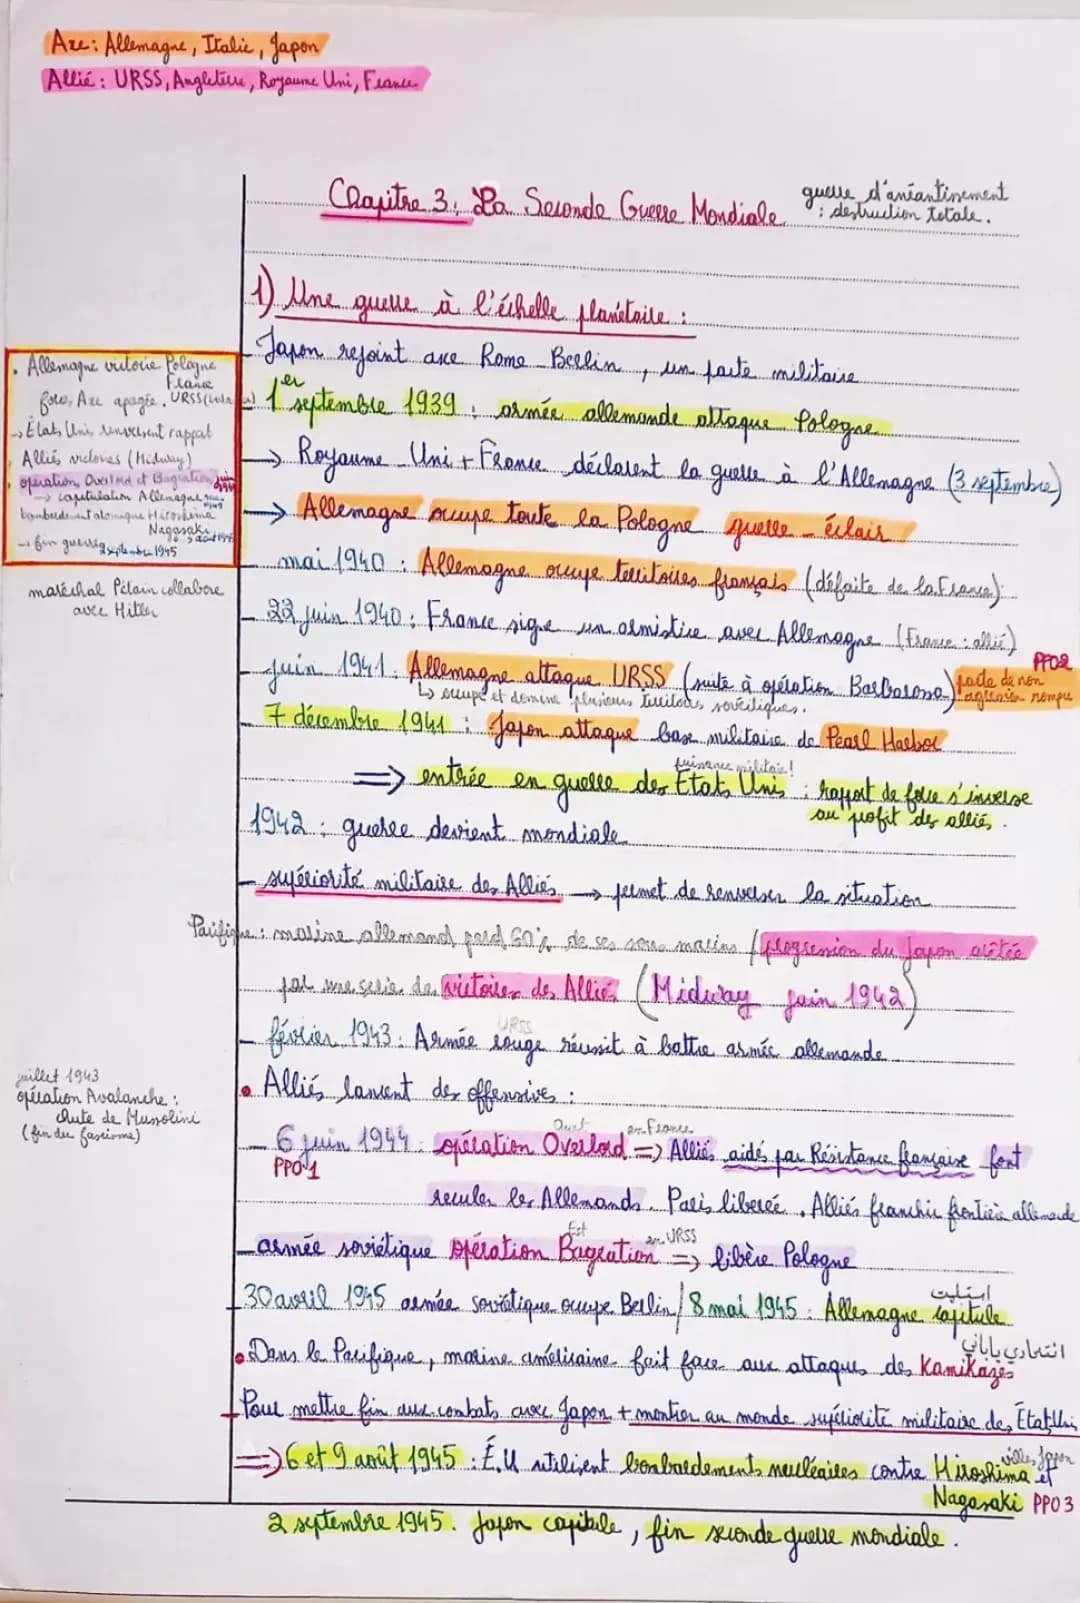 Axe : Allemagne, Italie, Japon
Allié : URSS, Angleterre, Royaume Uni, France
Chapitre 3 : La Seconde Guerre Mondiale
guerre d'anéantissement
: destruction totale.
1) Une guerre à l'échelle planétaire :
- Japon rejoint axe Rome-Berlin, un pacte militaire
- 1er septembre 1939 : armée allemande attaque Pologne
→ Royaume-Uni + France déclarent la guerre à l'Allemagne (3 septembre)
→ Allemagne occupe toute la Pologne guerre-éclair
- mai 1940 : Allemagne occupe territoires français (défaite de la France)
- 22 juin 1940 : France signe un armistice avec Allemagne (France : allié)
- juin 1941. Allemagne attaque URSS (suite à opération Barbarossa) pacte de non agression rompu
PPO2
↳ occupe et domine plusieurs territoires soviétiques.
- 7 décembre 1941 : Japon attaque base militaire de Pearl Harbor
puissance militaire!
⇒ entrée en guerre des États Unis : rapport de force s'inverse
au profit des alliés.
1942 : guerre devient mondiale
- supériorité militaire des Alliés → permet de renverser la situation
Pacifique : marine allemand perd 60% de ses sous marins / progression du Japon arêtée
par une serie de victoires des Alliés (Midway juin 1942)
URSS
- février 1943 : Armée rouge réussit à battre armée allemande
• Alliés lancent des offensives :
Ouest en France
- 6 juin 1944 : opération Overlord ⇒ Alliés aidés par Résistance française font
PPO1
reculer les Allemands. Paris liberée. Alliés franchir frontière allemande
Est en URSS
- armée soviétique opération Bagration ⇒ libère Pologne
استسلمت
30 avril 1945 armée soviétique occupe Berlin / 8 mai 1945 : Allemagne capitule
انتحاري ياباني
• Dans le Pacifique, marine américaine fait face aux attaques des Kamikazes
Pour mettre fin aux combats avec Japon + montrer au monde supériorité militaire des État Unis
villes Japon
⇒ 6 et 9 août 1945 : É.U utilisent bombardements nucléaires contre Hiroshima et
Nagasaki PPO3
2 septembre 1945. Japon capitule, fin seconde guerre mondiale.
• Allemagne victoire Pologne
France
force Axe apogée. URSS
→ États Unis renversent rapport
• Alliés victoires (Midway)
• opération Overlord et Bagration juin
→ capitulation Allemagne
bombardement atomique Hiroshima
Nagasaki
→ fin guerre 2 septembre 1945
maréchal Pétain collabore
avec Hitler
juillet 1943
opération Avalanche :
chute de Mussolini
(fin du fascisme)